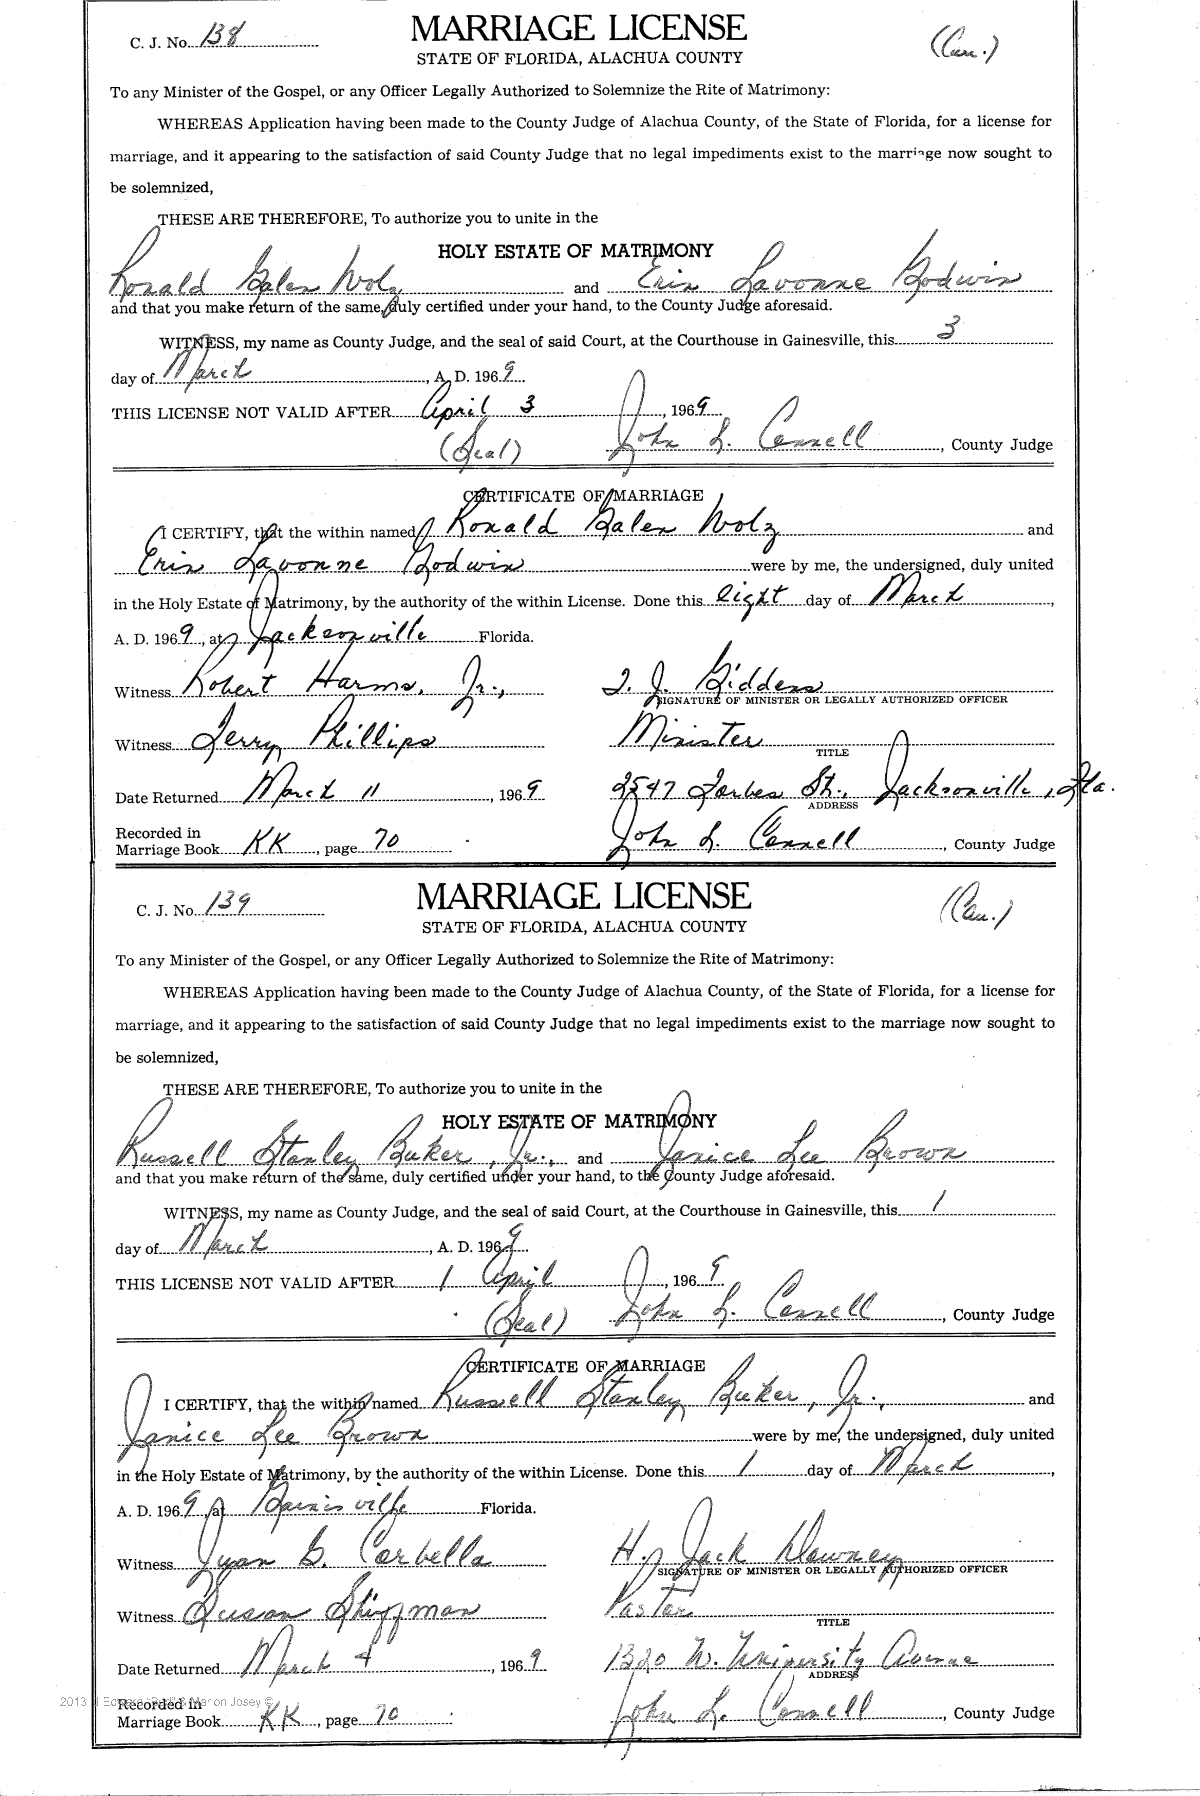 C. J. No. 138
MARRIAGE LICENSE
(Cau.)
STATE OF FLORIDA, ALACHUA COUNTY
To any Minister of the Gospel, or any Officer Legally Authorized to Solemnize the Rite of Matrimony:
WHEREAS Application having been made to the County Judge of Alachua County, of the State of Florida, for a license for
marriage, and it appearing to the satisfaction of said County Judge that no legal impediments exist to the marriage now sought to
be solemnized,
THESE ARE THEREFORE, To authorize you to unite in the
HOLY ESTATE OF MATRIMONY
Ronald Galen Wolz and Erin Lavonne Godwin
and that you make return of the same, duly certified under your hand, to the County Judge aforesaid.
WITNESS, my name as County Judge, and the seal of said Court, at the Courthouse in Gainesville, this 3
day of March, A. D. 1969
THIS LICENSE NOT VALID AFTER April 3, 1969
(Seal) John L. Connell, County Judge
CERTIFICATE OF MARRIAGE
I CERTIFY, that the within named Ronald Galen Wolz and
Erin Lavonne Godwin were by me, the undersigned, duly united
in the Holy Estate of Matrimony, by the authority of the within License. Done this eight day of March,
A. D. 1969, at Jacksonville Florida.
Witness Robert Harms, Jr., T. J. Giddens
SIGNATURE OF MINISTER OR LEGALLY AUTHORIZED OFFICER
Witness Jerry Phillips Minister
TITLE
Date Returned March 11, 1969 2547 Forbes St., Jacksonville, Fla.
ADDRESS
Recorded in
Marriage Book KK, page 70 John L. Connell, County Judge
C. J. No. 139
MARRIAGE LICENSE
(Cau.)
STATE OF FLORIDA, ALACHUA COUNTY
To any Minister of the Gospel, or any Officer Legally Authorized to Solemnize the Rite of Matrimony:
WHEREAS Application having been made to the County Judge of Alachua County, of the State of Florida, for a license for
marriage, and it appearing to the satisfaction of said County Judge that no legal impediments exist to the marriage now sought to
be solemnized,
THESE ARE THEREFORE, To authorize you to unite in the
HOLY ESTATE OF MATRIMONY
Russell Stanley Buker, Jr., and Janice Lee Brown
and that you make return of the same, duly certified under your hand, to the County Judge aforesaid.
WITNESS, my name as County Judge, and the seal of said Court, at the Courthouse in Gainesville, this 1
day of March, A. D. 1969
THIS LICENSE NOT VALID AFTER 1 April, 1969
(Seal) John L. Connell, County Judge
CERTIFICATE OF MARRIAGE
I CERTIFY, that the within named Russell Stanley Buker, Jr., and
Janice Lee Brown were by me, the undersigned, duly united
in the Holy Estate of Matrimony, by the authority of the within License. Done this 1 day of March,
A. D. 1969, at Gainisville Florida.
Witness Lyan G. Corbella H. Jack Dawney
SIGNATURE OF MINISTER OR LEGALLY AUTHORIZED OFFICER
Witness Susan Shiffman Pastor
TITLE
Date Returned March 4, 1969 1320 W. University Avenue
ADDRESS
Recorded in
Marriage Book KK, page 70 John L. Connell, County Judge